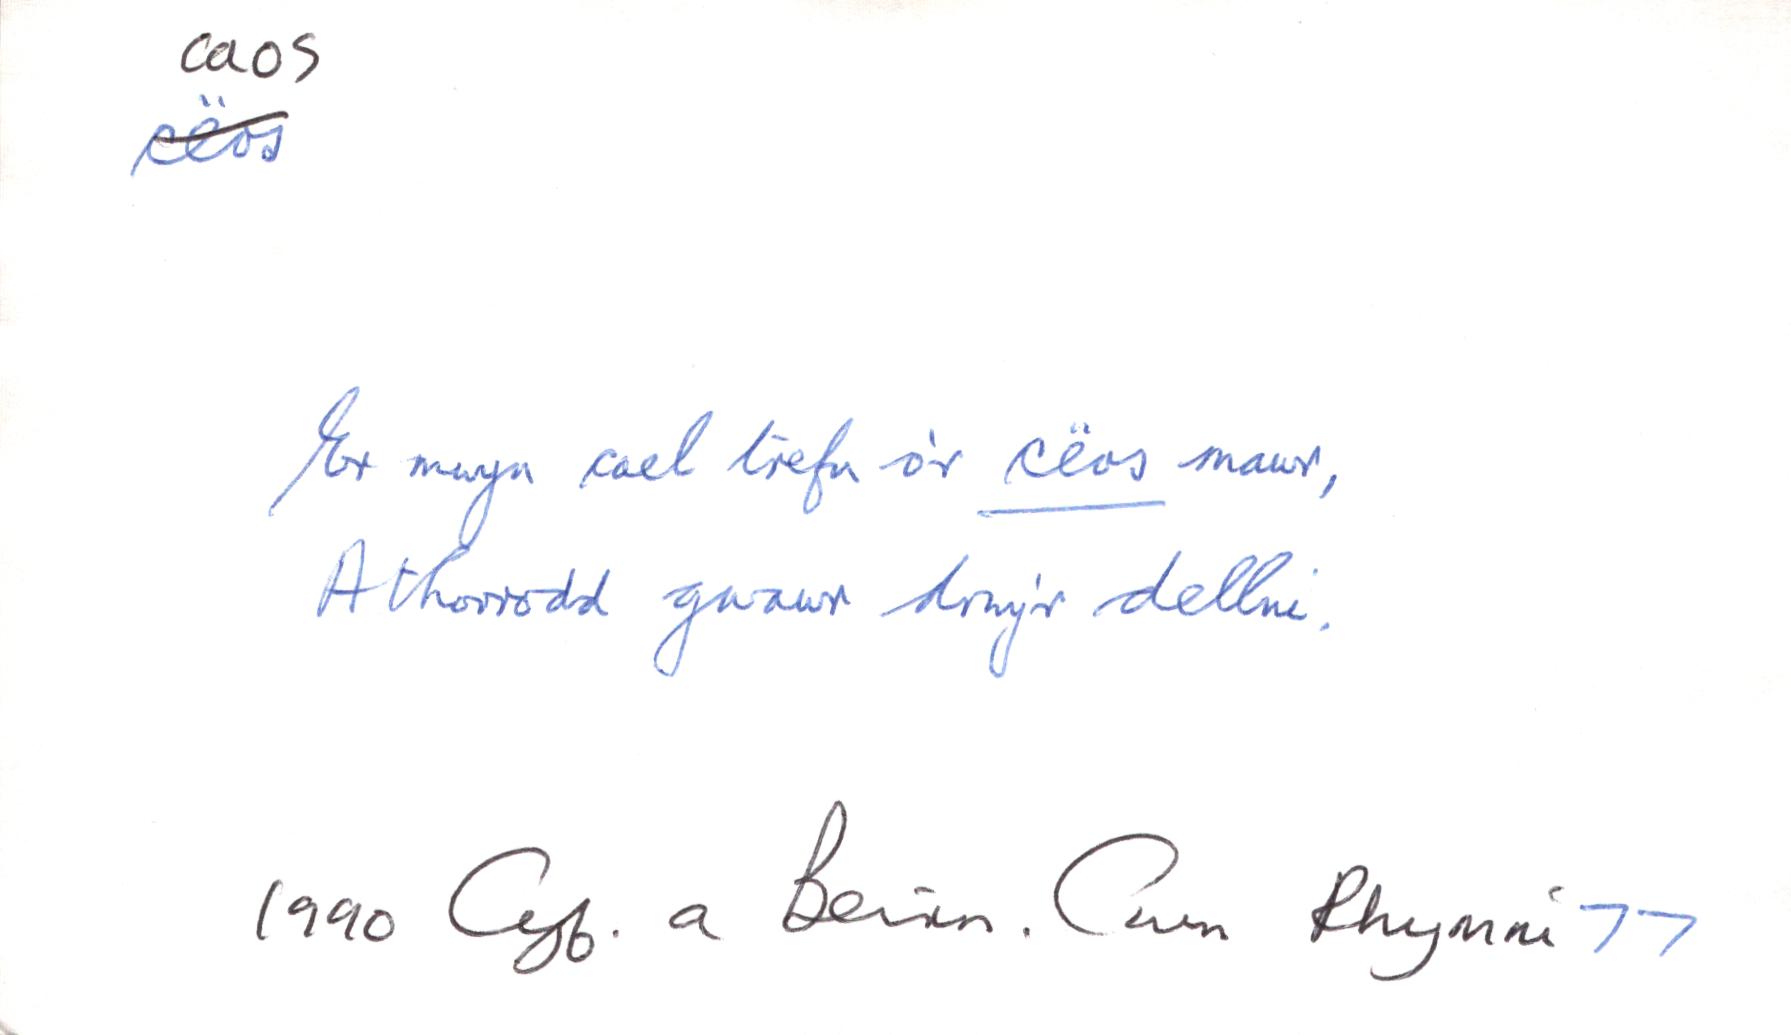 caos
cëos
Er mwyn cael trefn o'r cëos mawr,
A thorrodd gwawr drwy'r dellni.
1990 Cyf. a Beirn. Cwm Rhymni 77